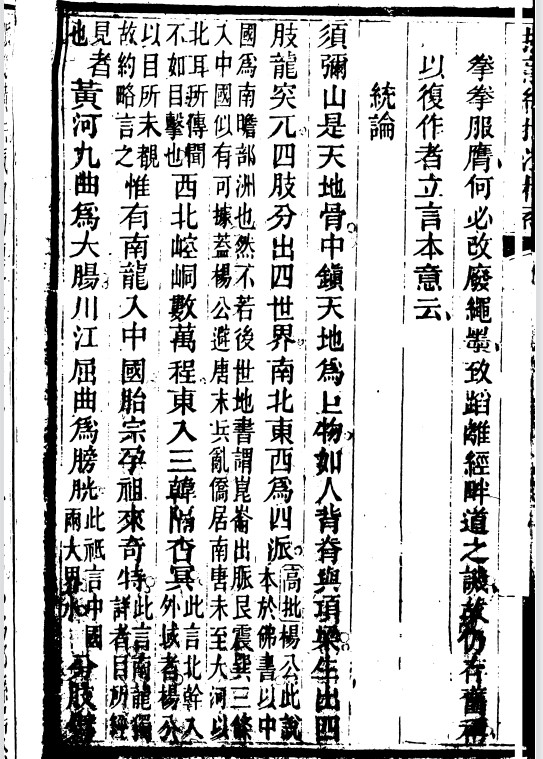 拳拳服膺何必改廢繩墨致蹈離經畔道之譏故仍存舊稱
以復作者立言本意云
統論
須彌山是天地骨中鎮天地為巨物如人背脊與項梁生出四
肢龍突兀四肢分出四世界南北東西為四派
高批楊公此說
本於佛書以中
國為南瞻部洲也然不若後世地書謂崑崙出脈艮震巽三條
入中國似有可據蓋楊公避唐末兵亂僑居南唐未至大河以
北耳所傳聞
不如目擊也
西北崆峒數萬程東入三韓隔杳冥
此言北幹入
外域者楊公
以目所未覩
故約略言之
惟有南龍入中國胎宗孕祖來奇特
此言南龍獨
詳者目所經
見者
也
黃河九曲為大腸川江屈曲為膀胱
此祇言中國
兩大界水
分肢